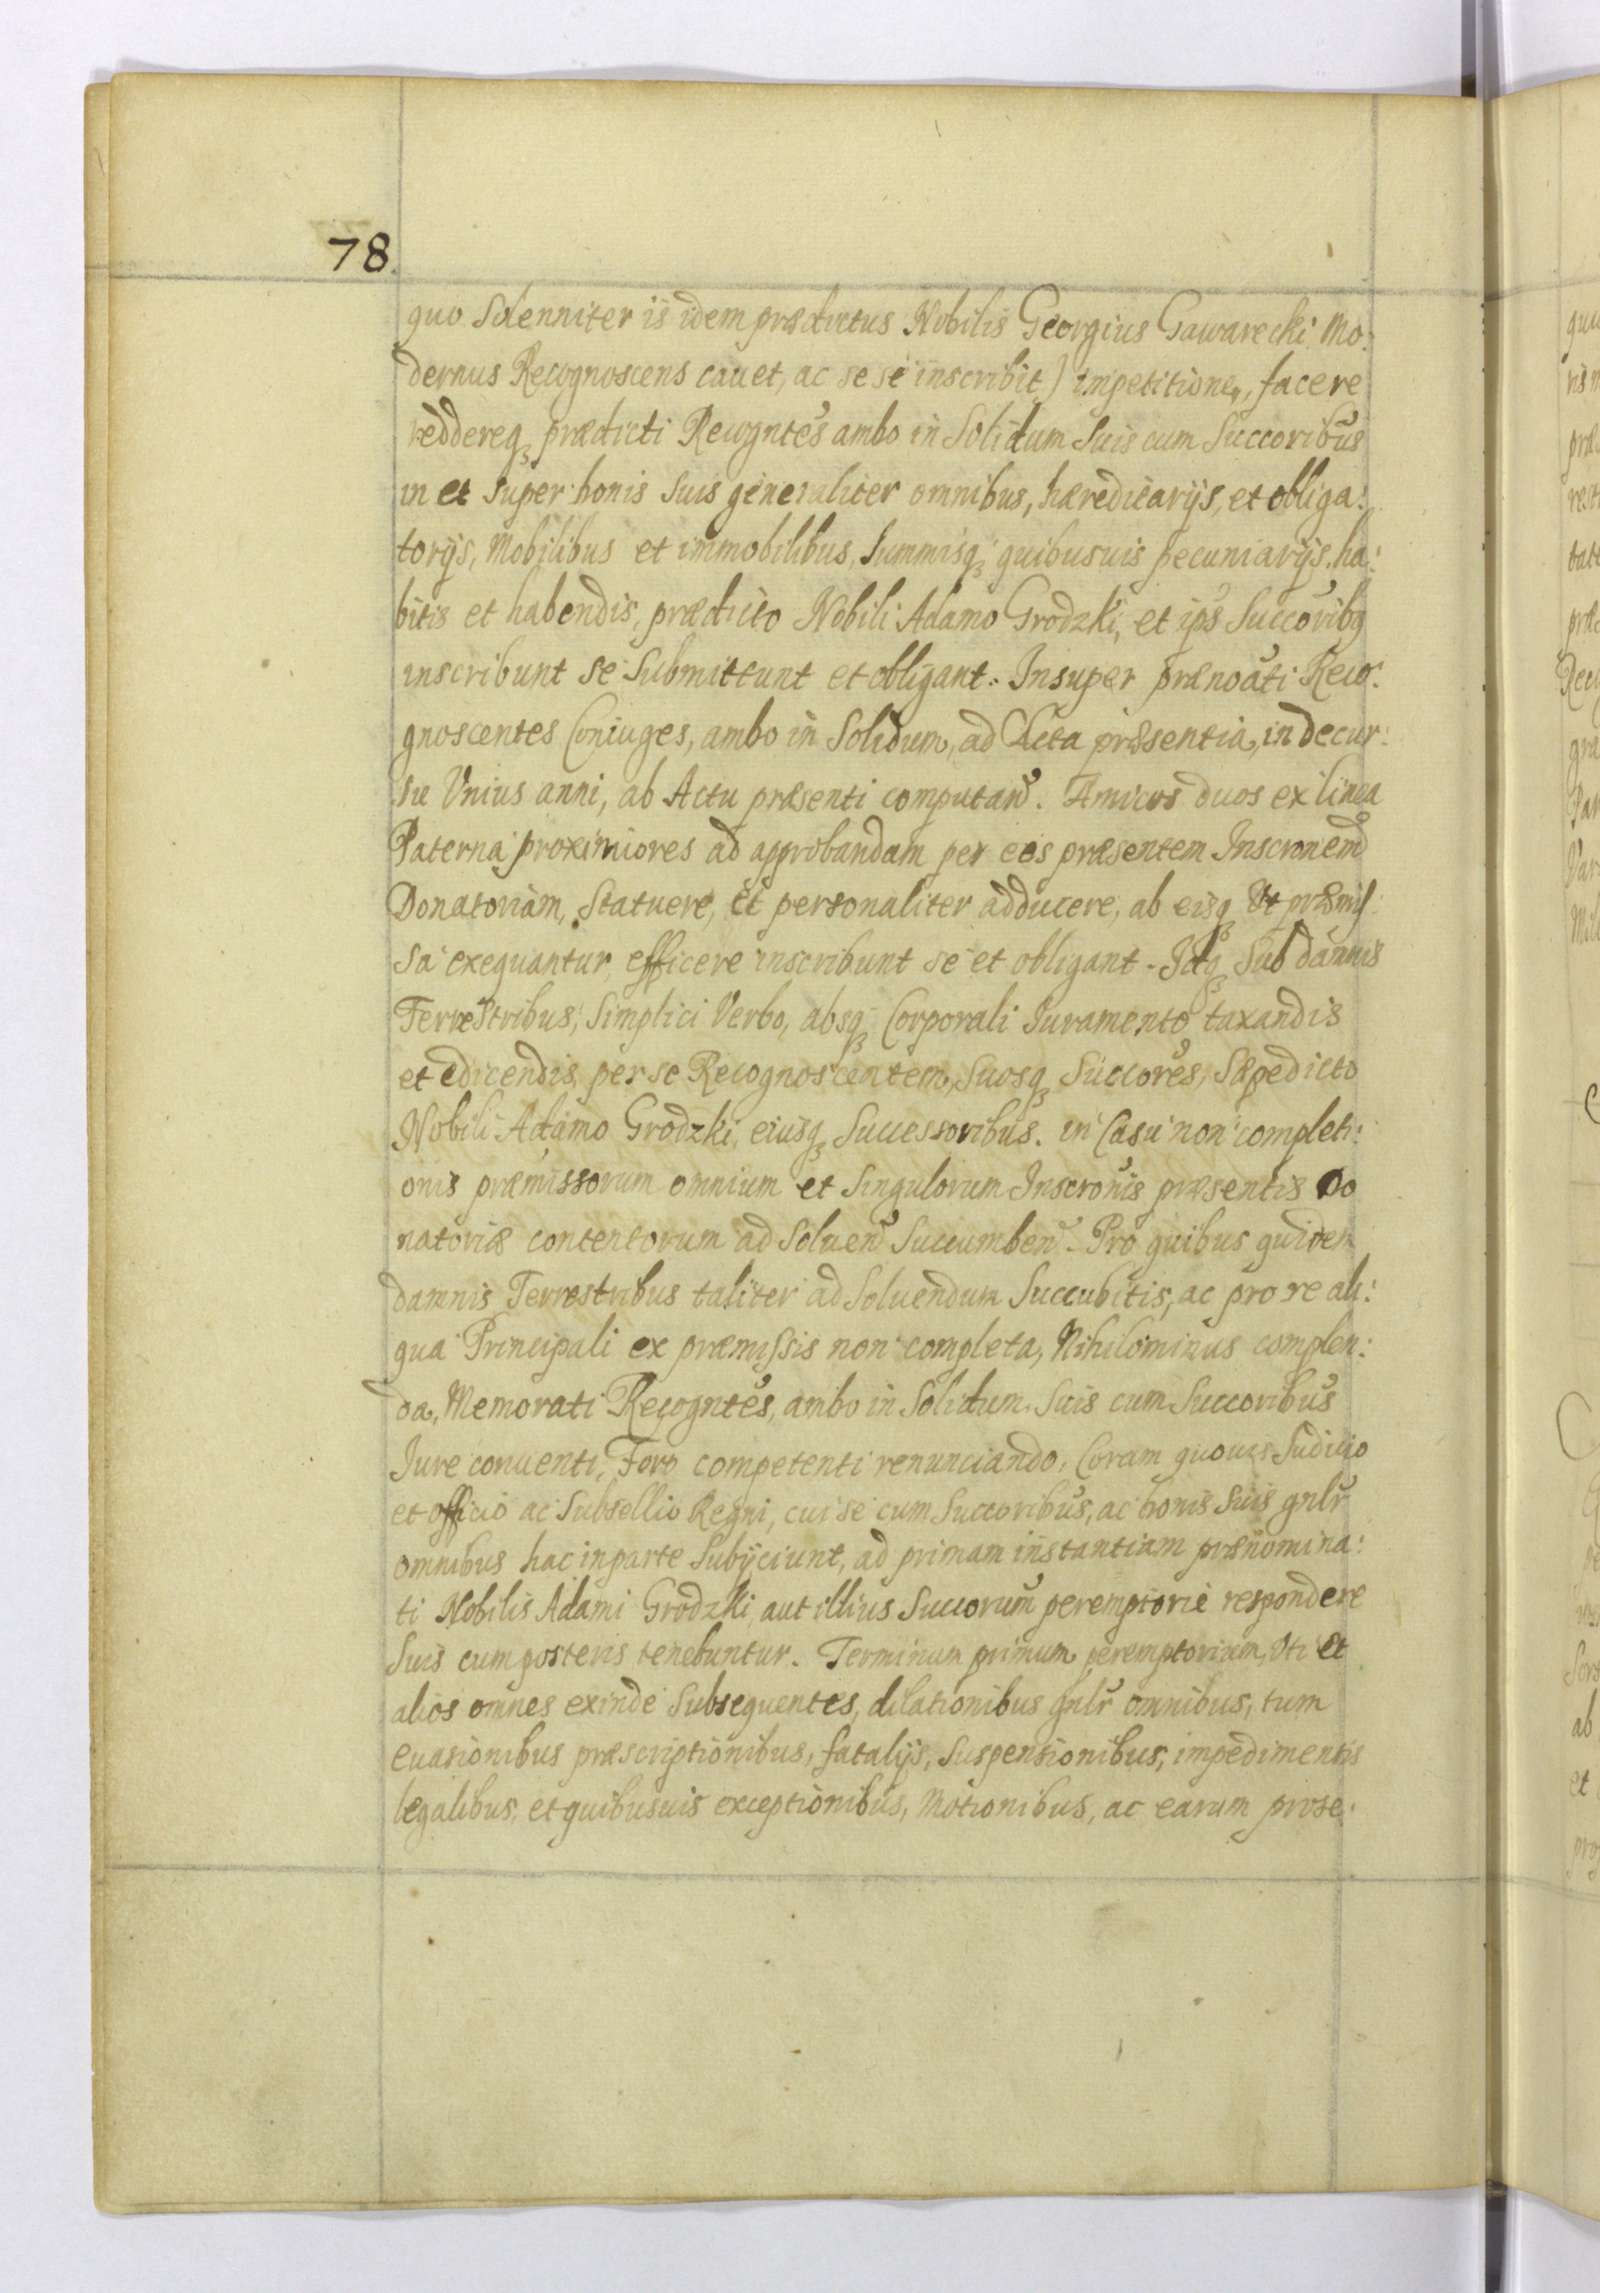 78.
quo Solenniter is idem prædictus Nobilis Georgius Gawarecki Mo:
dernus Recognoscens cauet, ac se se inscribit) impetitione, facere
reddereq3 prædicti Recogntes ambo in Solidum Suis cum Succoribus
in et Super bonis Suis generaliter omnibus, hæreditarijs, et obliga:
torijs, Mobilibus et immobilibus, Summisq3 quibusuis pecuniarijs, ha:
bitis et habendis, prædicto Nobili Adamo Grodzki, et ips Succoribq
inscribunt se Submittunt et obligant. Insuper prænoati Reco:
gnoscentes Coniuges, ambo in Solidum, ad Acta præsentia, in decur:
su Vnius anni, ab Actu præsenti computan. Amicos duos ex linea
Paterna proximiores ad approbandam per eos præsentem Inscronem
Donatoriam, Statuere, et personaliter adducere, ab eisq3 Vt præmis:
sa exequantur efficere inscribunt se et obligant. Idq3 Sub damnis
Terrestribus, Simplici Verbo, absq3 Corporali Iuramento taxandis
et edicendis, per se Recognoscentem, Suosq3 Succores, Sæpedicto
Nobili Adamo Grodzki, eiusq3 Successoribus. in Casu non completi:
onis præmissorum omnium et Singulorum Inscronis præsentis Do
natoriæ contentorum ad Soluen Succumben. Pro quibus quidem
damnis Terrestribus taliter ad Soluendum Succubitis, ac pro re ali:
qua Principali ex præmissis non completa, Nihilominus complen:
da, Memorati Recogntes, ambo in Solidum Suis cum Succoribus
Iure conuenti, Foro competenti renunciando, Coram quouis Iudicio
et officio ac Subsellio Regni, cui se cum Succoribus, ac bonis Suis gnlr
omnibus hac in parte Subijciunt, ad primam instantiam prænomina:
ti Nobilis Adami Grodzki, aut illius Succorum peremptorie respondere
Suis cum posteris tenebuntur. Terminum primum peremptorium, Vti et
alios omnes exinde Subsequentes, dilationibus gnlr omnibus, tum
euasionibus præscriptionibus, fatalijs, Suspensionibus, impedimentis
legalibus, et quibusuis exceptionibus, Motionibus, ac earum prose: